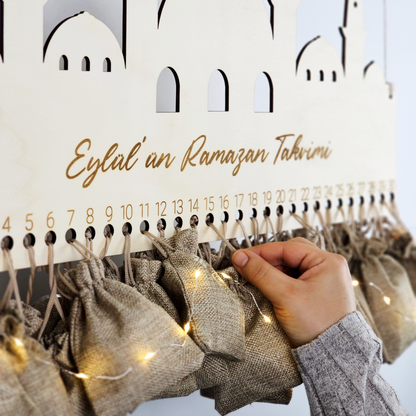 Eylül'ün Ramazan Takvimi
4 5 6 7 8 9 10 11 12 13 14 15 16 17 18 19 20 21 22 23 24 25 26 27 28 29 30